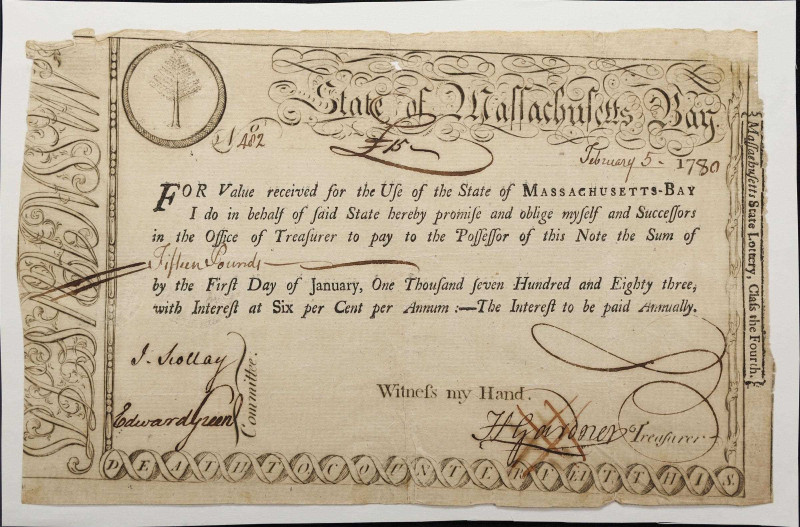 State of Massachusetts Bay.
№ 482
£15
February 5. 1780
FOR Value received for the Uſe of the State of MASSACHUSETTS-BAY
I do in behalf of ſaid State hereby promiſe and oblige myſelf and Succeſſors
in the Office of Treaſurer to pay to the Poſſeſſor of this Note the Sum of
Fifteen Pounds
by the Firſt Day of January, One Thouſand ſeven Hundred and Eighty three,
with Intereſt at Six per Cent per Annum :—The Intereſt to be paid Annually.
J. Scollay
Edward Green
Committee.
Witneſs my Hand.
H Gardner Treaſurer
DEATH TO COUNTERFEIT THIS.
Maſſachuſetts State Lottery, Claſs the Fourth.